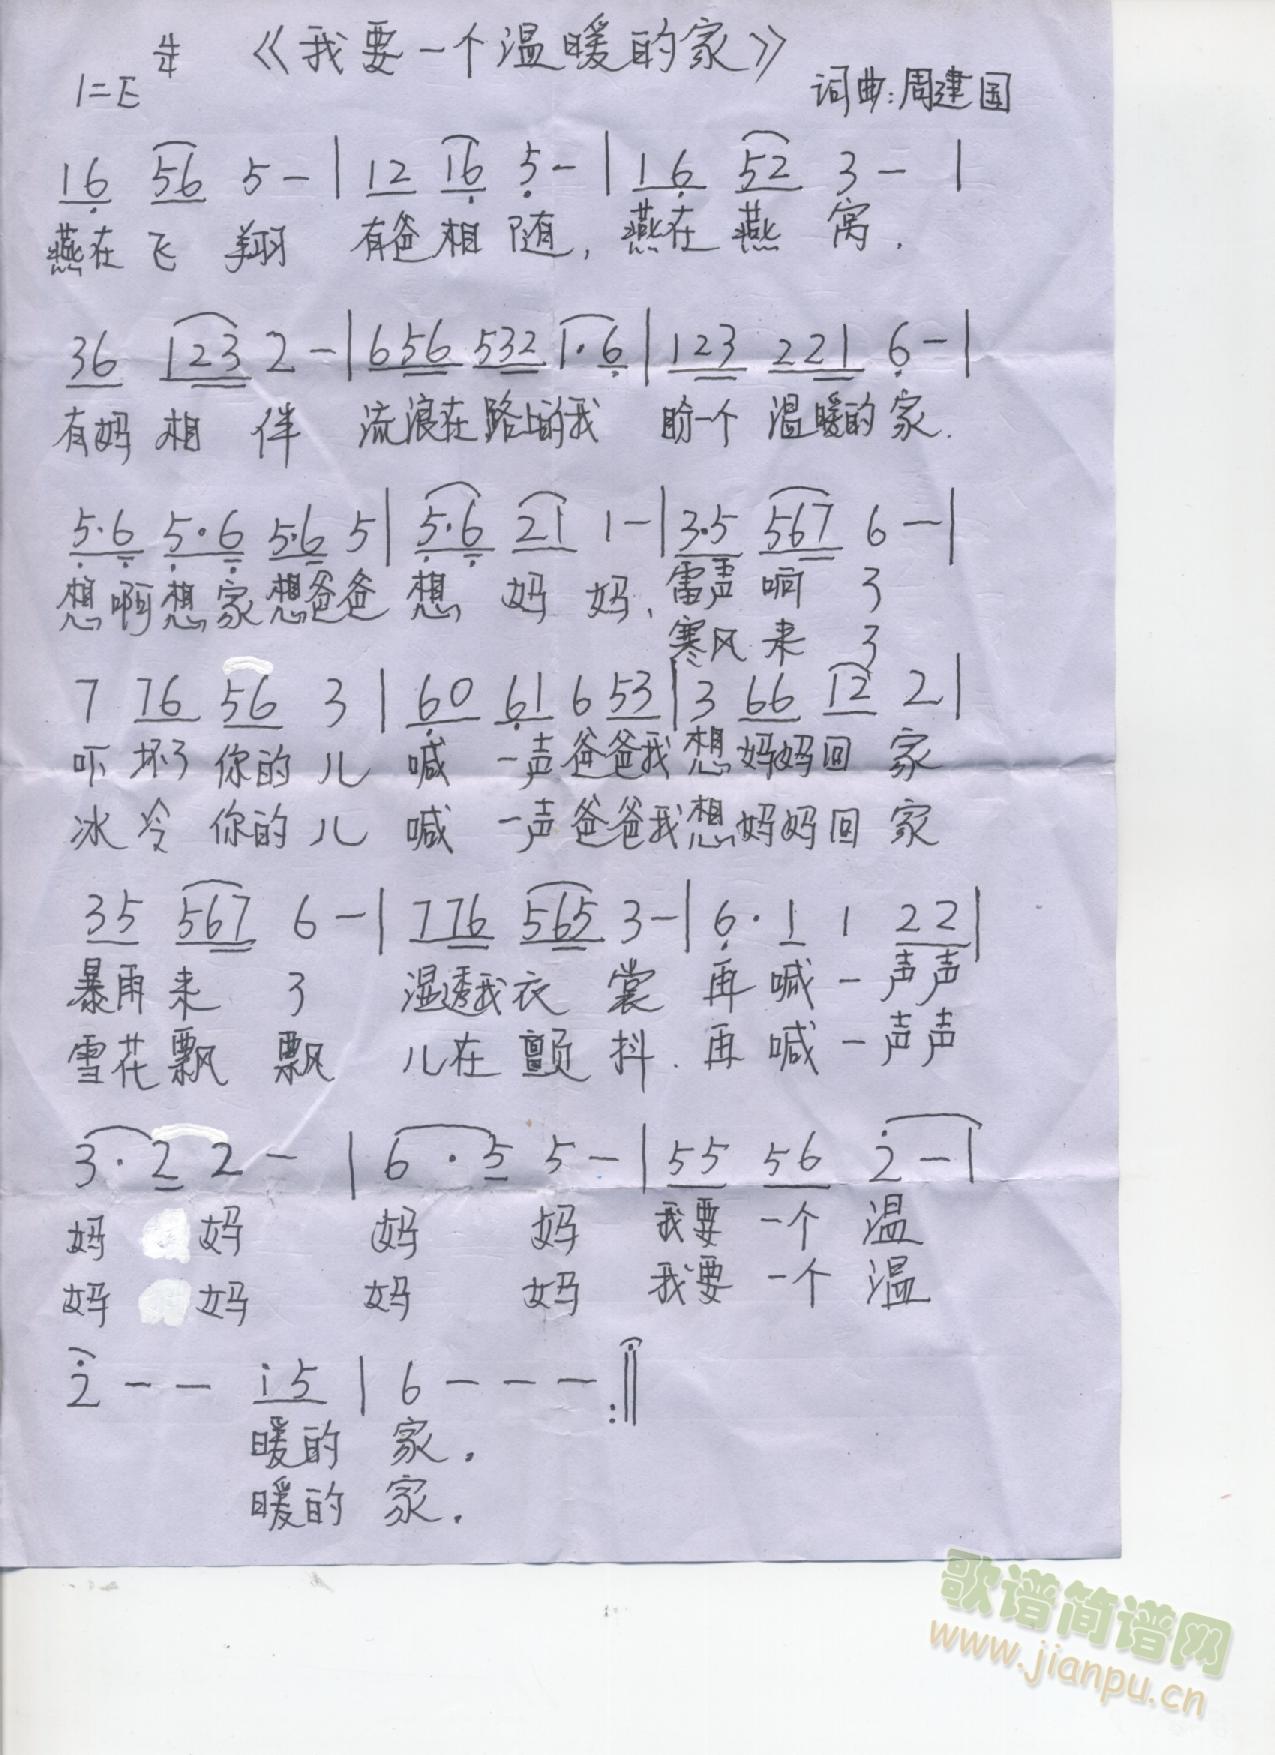 4/4 《我要一个温暖的家》
1=E 词曲:周建国
16 56 5 - | 12 16 5 - | 16 52 3 - |
燕在飞翔 有爸相随, 燕在燕窝.
36 123 2 - | 656 532 1·6 | 123 221 6 - |
有妈相伴 流浪在路上的我 盼一个温暖的家.
5·6 5·6 5·6 5 | 5·6 21 1 - | 3·5 567 6 - |
想啊想家想爸爸 想妈妈. 雷声响了
寒风来了
7 76 56 3 | 60 61 6 53 | 3 66 12 2 |
吓坏了你的儿 喊一声爸爸我想妈妈回家
冰冷你的儿 喊一声爸爸我想妈妈回家
35 567 6 - | 776 565 3 - | 6·1 1 22 |
暴雨来了 湿透我衣裳 再喊一声声
雪花飘飘 儿在颤抖. 再喊一声声
3·2 2 - | 6·5 5 - | 55 56 2 - |
妈妈 妈妈 我要一个温
妈妈 妈妈 我要一个温
2 - - i5 | 6 - - - :‖
暖的家.
暖的家.
歌谱简谱网
www.jianpu.cn